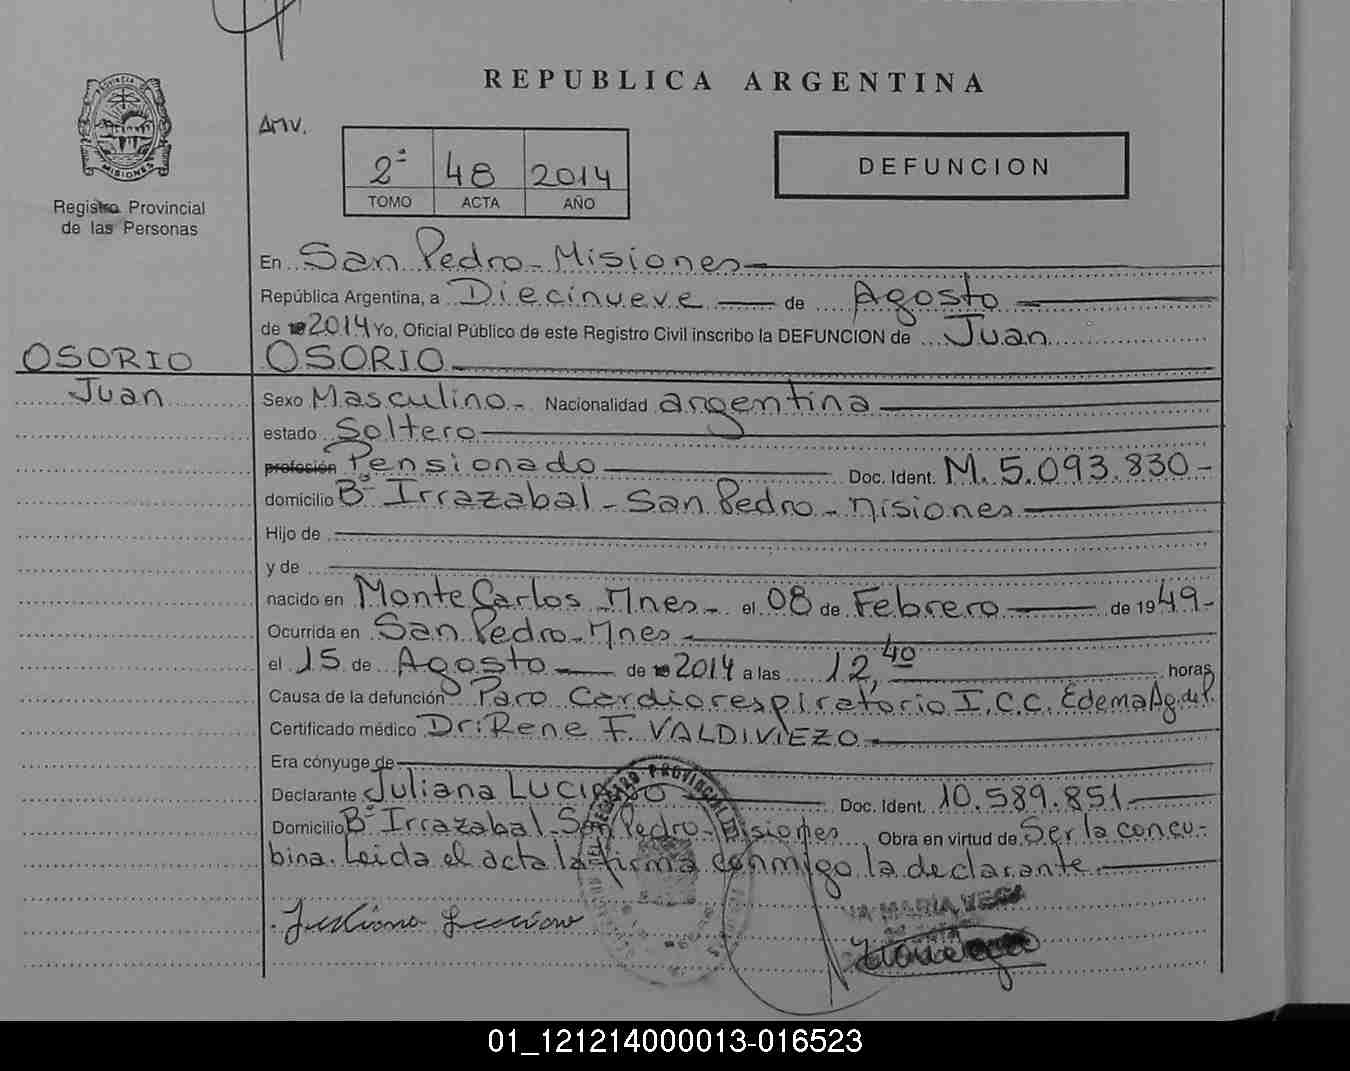 REPUBLICA ARGENTINA
PROVINCIA DE MISIONES
Registro Provincial
de las Personas
2ª 48 2014
TOMO ACTA AÑO
DEFUNCION
En San Pedro - Misiones
República Argentina, a Diecinueve de Agosto
de 2014 Yo, Oficial Público de este Registro Civil inscribo la DEFUNCION de Juan
OSORIO
OSORIO
Juan
Sexo Masculino - Nacionalidad argentina
estado Soltero
profesión Pensionado Doc. Ident. M. 5.093.830-
domicilio Bº Irrazabal - San Pedro - Misiones
Hijo de
y de
nacido en Monte Carlos - Mnes - el 08 de Febrero de 1949-
Ocurrida en San Pedro - Mnes -
el 15 de Agosto de 2014 a las 12,40 horas
Causa de la defunción Paro Cardiorespiratorio I.C.C. Edema Ag. del P.
Certificado médico Dr: Rene F. VALDIVIEZO
Era cónyuge de
Declarante Juliana LUCIANO Doc. Ident. 10.589.851
Domicilio Bº Irrazabal - San Pedro - Misiones Obra en virtud de Ser la concu-
bina. Leida el acta la firma conmigo la declarante
REGISTRO PROVINCIAL
MARIA VEGA
01_121214000013-016523